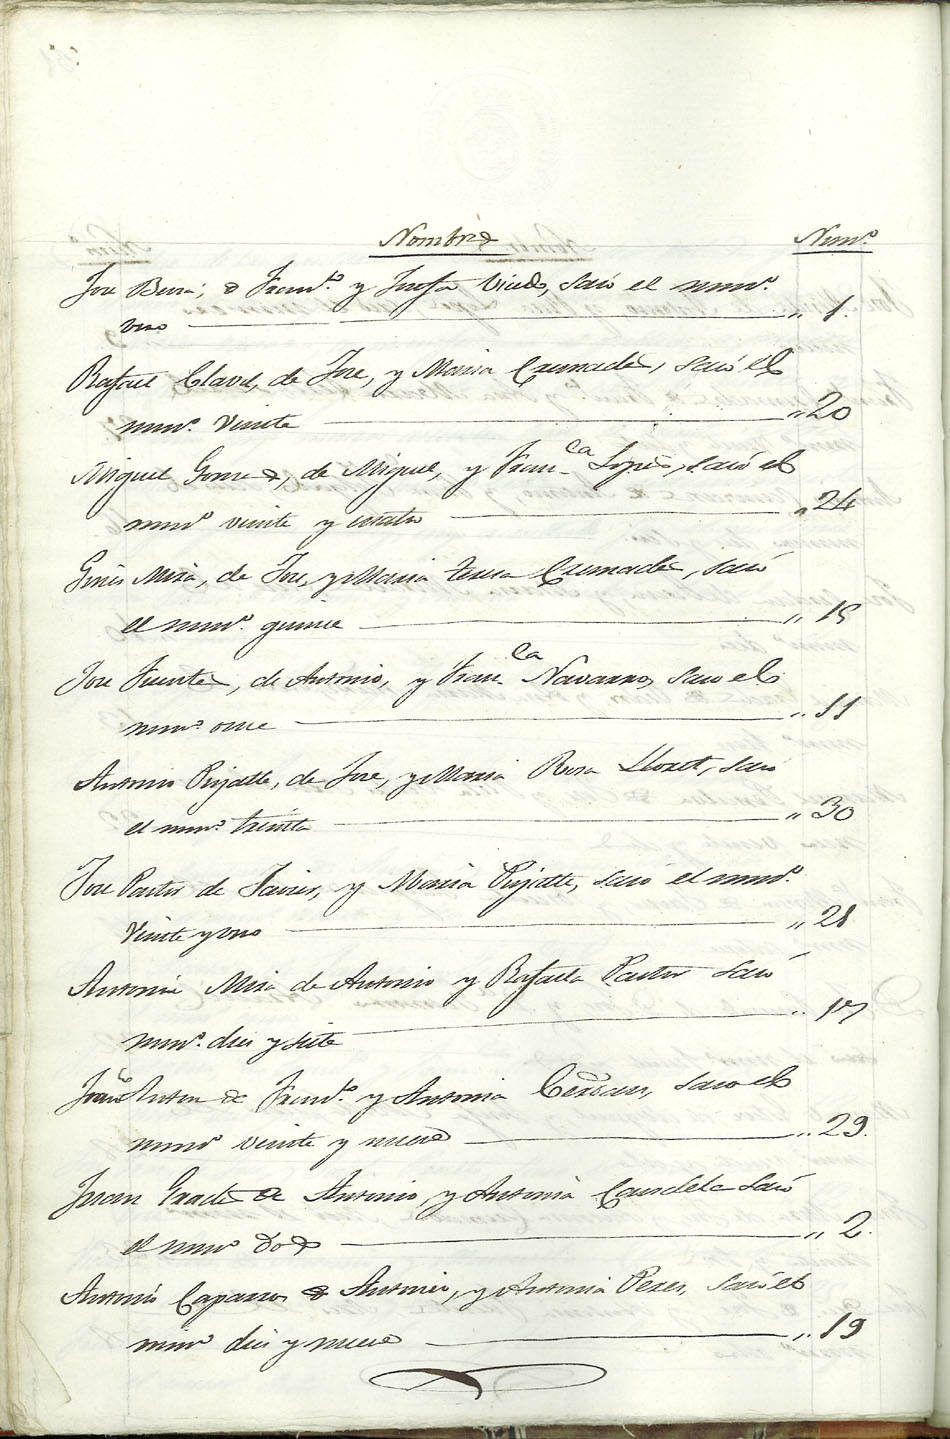 Nombres Numº
Jose Berna, de Franº y Josefa Vicedo, sacó el numº
uno „ 1.
Rafael Clavel, de Jose, y Maria Cremades, sacó el
numº veinte „ 20
Miguel Gomes, de Miguel, y Franca Lopes, sacó el
numº veinte y cuatro „ 24
Gines Mira, de Jose, y Maria teresa Cremades, sacó
el numº quince „ 15
Jose Fuentes, de Antonio, y Franca Navarro, saco el
numº once „ 11
Antonio Pujalte, de Jose, y Maria Rosa Lloret, sacó
el numº treinta „ 30
Jose Pastor de Javier, y Maria Pujalte, saco el numº
veinte y uno „ 21
Antonio Mira de Antonio y Rafaela Pastor sacó
numº dies y siete „ 17
Franco Anton de Franº y Antonia Cerdan, saco el
numº veinte y nueve „ 29.
Juan Prades de Antonio, y Antonia Candela sacó
el numº dos „ 2.
Antonio Caparros de Antonio, y Antonia Peres, sacó el
numº dies y nueve „ 19